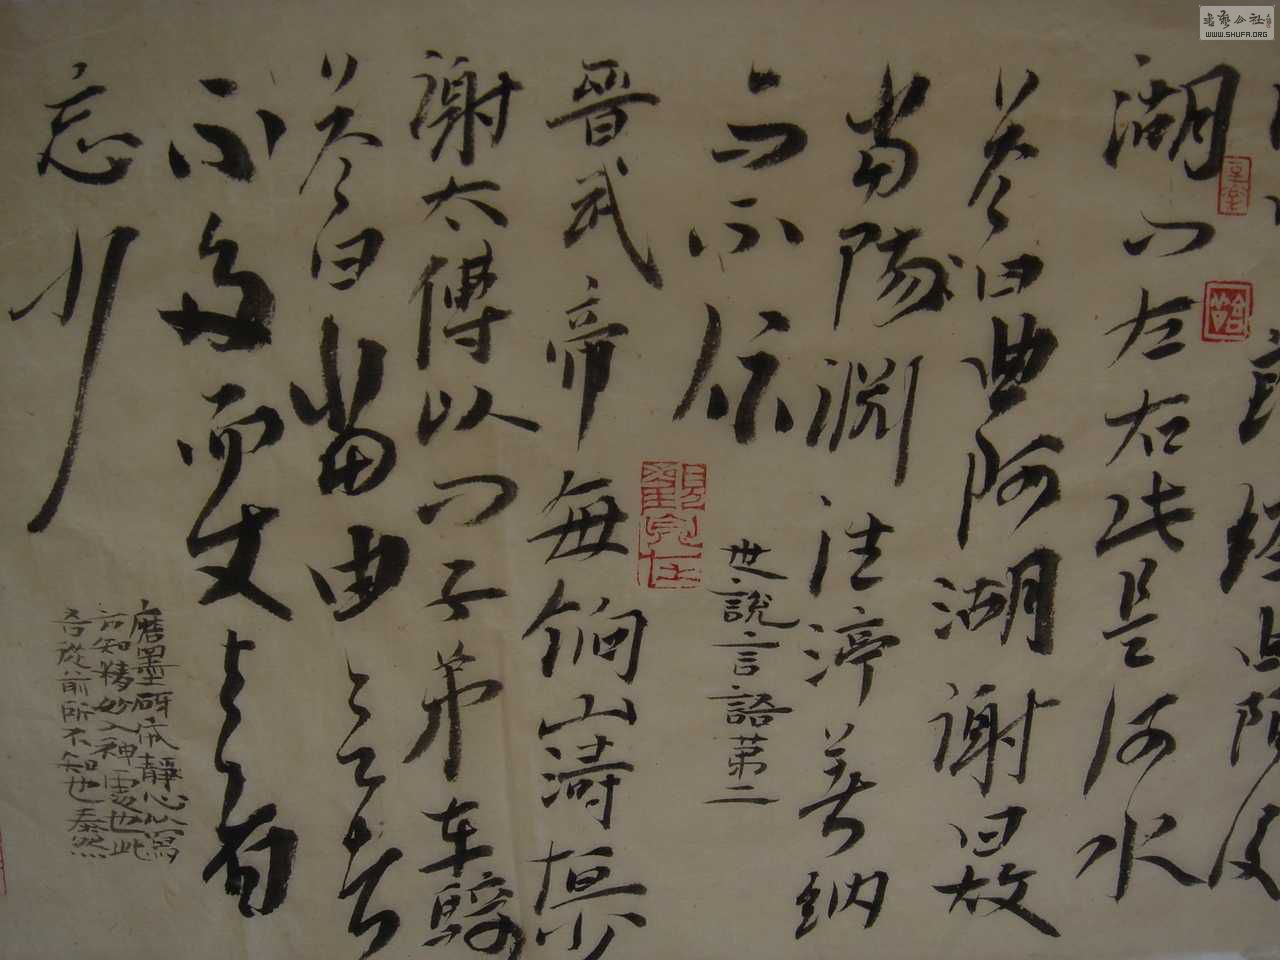 郎經曲阿後
湖問左右此是何水
答曰曲阿湖謝曰故
當淵注渟著納
而不流
世說言語第二
觀自在
晉武帝每餉山濤恆少
謝太傅以問子弟車騎
答曰當由欲者
不多而使與者
忘少
磨墨研靜心寫
方知精妙入神處也此
吾從前所不知也泰然
WWW.SHUFA.ORG